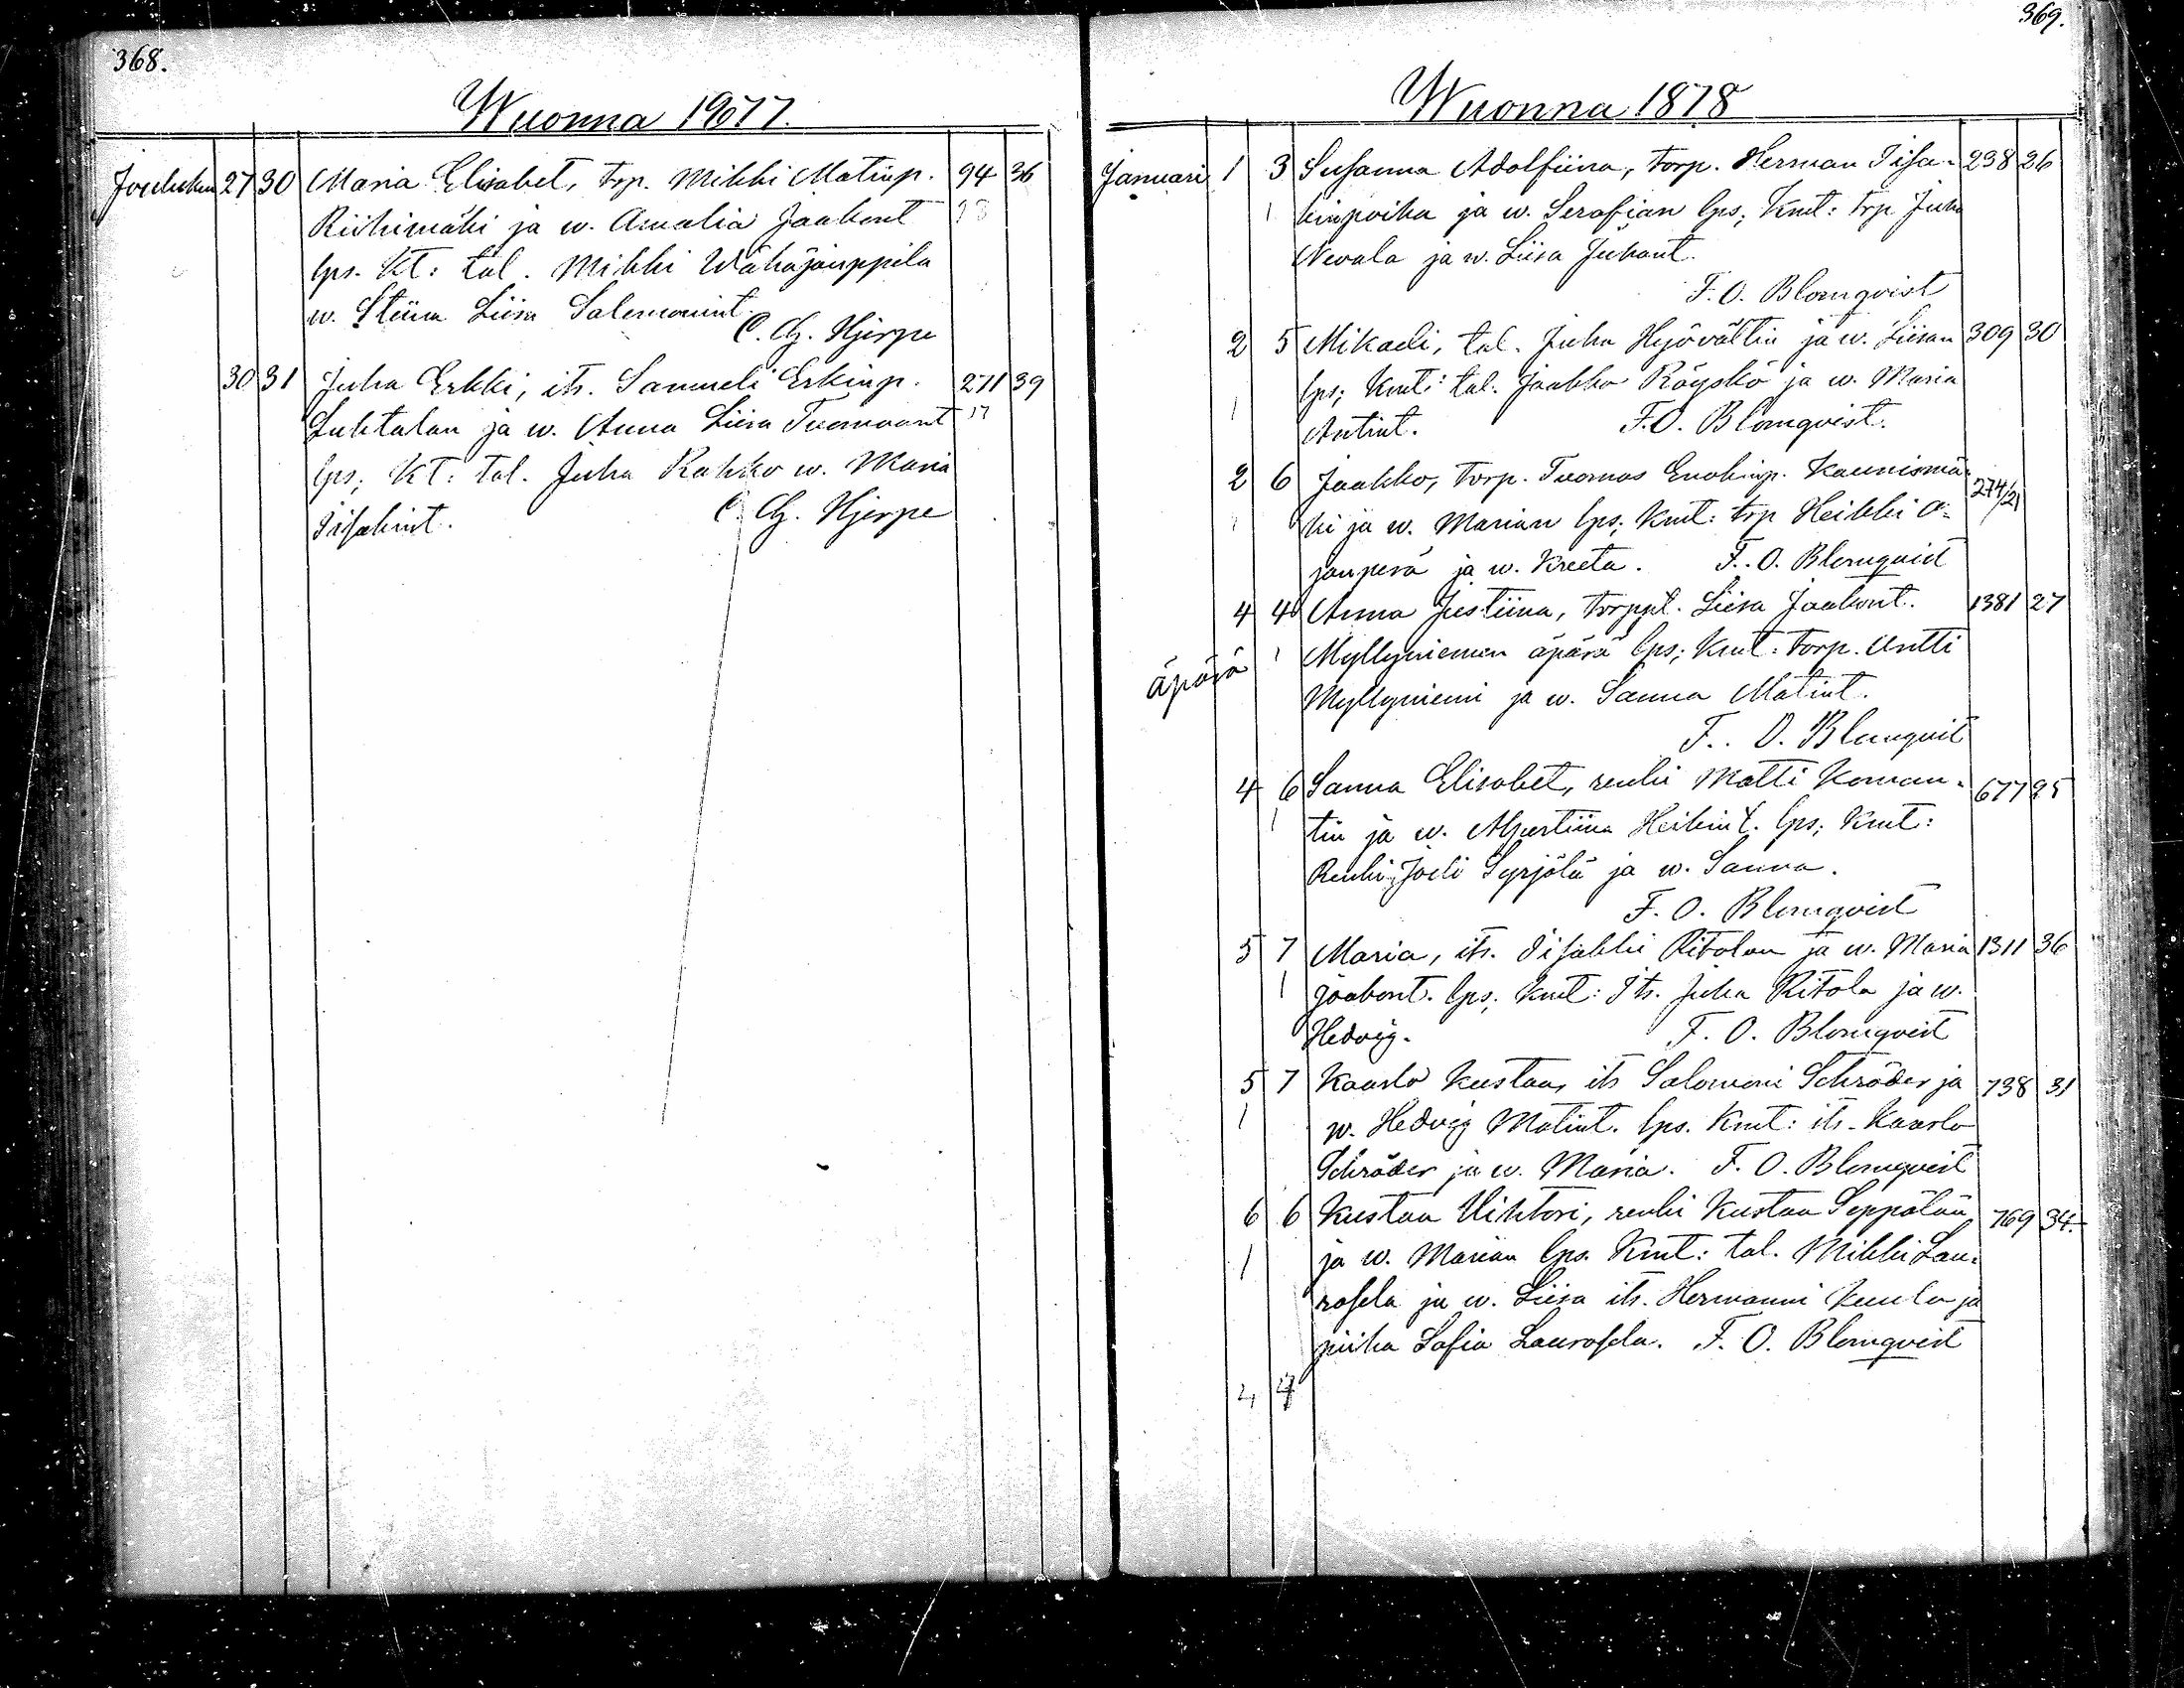 368.
Wuonna 1877.
Jouluku 27 30 Maria Elisabet, trp. Mikki Matinp. 94 36
Riihimäki ja w. Amalia Jaakont 98
lps. Kt: tal. Mikki Wähäjauppila
w. Stiina Liisa Salomonint.
C. G. Hjerpe
30 31 Juha Erkki, its. Samueli Erkinp. 271 39
Luhtalan ja w. Anna Liisa Tuomaant 17
lps; Kt: tal. Juha Rahko w. Maria
Iisakint. C. G. Hjerpe
369.
Wuonna 1878
Januari 1 3 Susanna Adolfiina, torp. Herman Iisa- 238 26
1 kinpoika ja w. Serafian lps; Kmt: trp Juha
Nevala ja w. Liisa Juhant.
F. O. Blomqvist
2 5 Mikaeli, tal. Juha Hyövältin ja w. Liisan 309 30
lps; Kmt: tal. Jaakko Röyskö ja w. Maria
1 Antint. F. O. Blomqvist.
2 6 Jaakko, torp. Tuomas Enokinp. Kaunismä- 274/21
1 ki ja w. Marian lps; Kmt: trp Heikki A-
janperä ja w. Kreeta. F. O. Blomqvist
4 4 Anna Justiina, torppt. Liisa Jaakont. 1381 27
äpärä 1 Myllyniemen äpärä lps; Kmt: torp. Antti
Myllyniemi ja w. Sanna Matint.
F. O. Blomqvist
4 6 Sanna Elisabet, renki Matti Koman- 677 25
1 tin ja w. Alpertiina Heikint. lps; Kmt:
Renki Joeli Syrjälä ja w. Sanna.
F. O. Blomqvist
5 7 Maria, its. Iisakki Ritolan ja w. Maria 1311 36
1 Jaakont. lps; Kmt: Its. Juha Ritola ja w.
Hedvig. F. O. Blomqvist
5 7 Kaarlo Kustaa, its Salomoni Schröder ja 738 31
1 w. Hedvig Matint. lps. Kmt: its. Kaarlo
Schröder ja w. Maria. F. O. Blomqvist
6 6 Kustaa Vihtori, renki Kustaa Seppälän 769 34.
1 ja w. Marian lps. Kmt: tal. Mikki Lau-
rosela ja w. Liisa its. Hermanni Kuula ja
piika Sofia Laurosela. F. O. Blomqvist
4 4